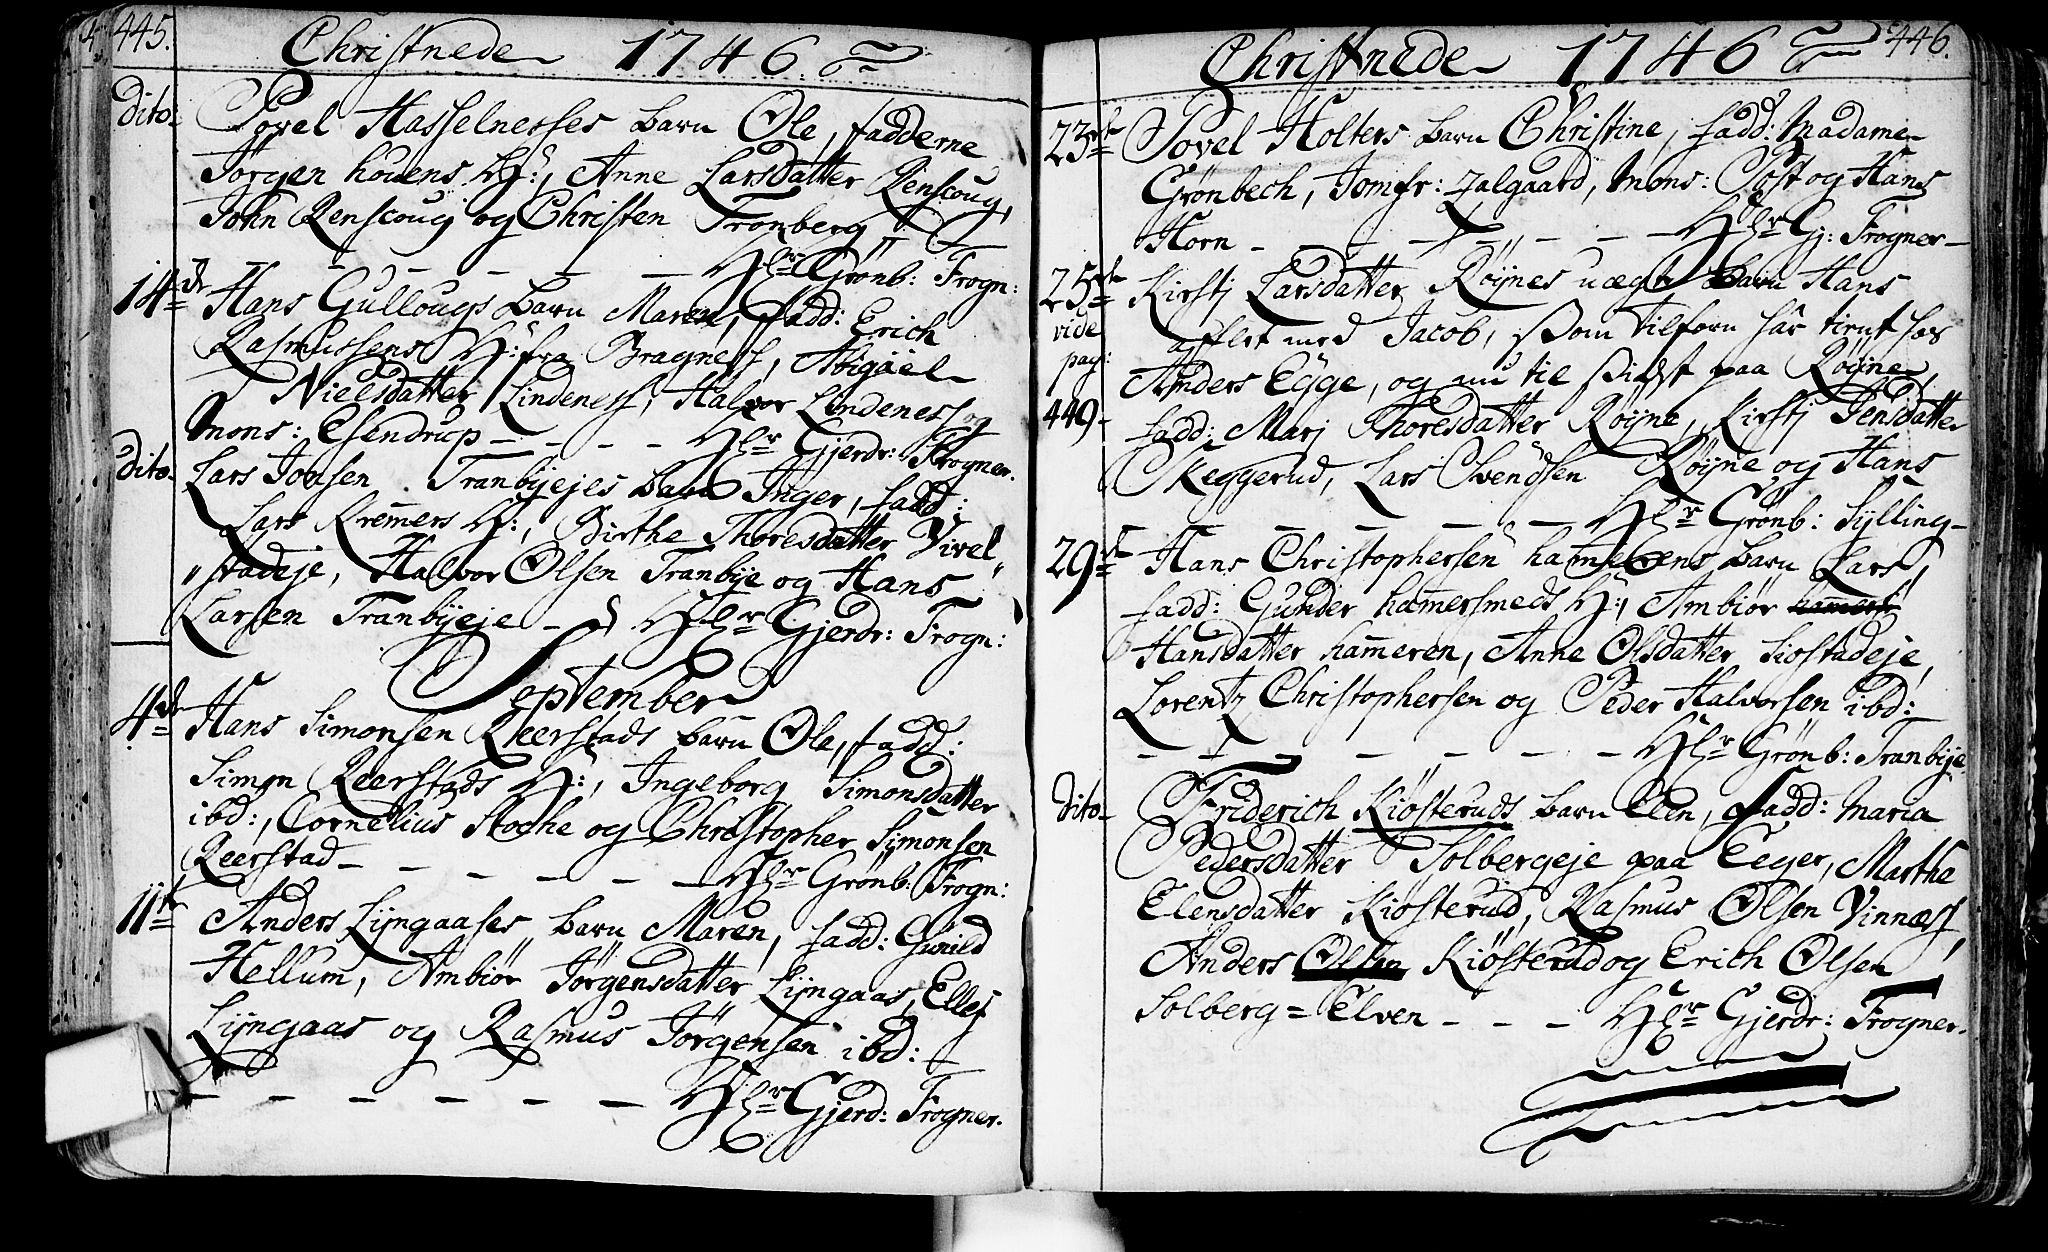 445.
Christnede 1746.
dito: Povel Hasselnesses barn Ole, fadderne
Jørgen houens H:, Anne Larsdatter Renscoug,
John Renscoug og Christen Tronberg
— — — — — — Hr Grönb: Frogn:
14de Hans Gullougs barn Maren, fadd: Erich
Rasmussens H: fra Bragness, Abigael
Nielsdatter Lindeness, Halvor Lindeness og
Mons: Esendrup — — — — Hr Gjerdr: Frogner.
dito. Lars Jonsen Tranbyejes barn Inger, fadd:
Lars Kremers H:, Birthe Thoresdatter Vivel„
„stadeje, Halvor Olsen Tranbye og Hans
Larsen Tranbyeje — Hr Gjerdr: Frogn:
September
4de Hans Simonsen Reerstads barn Ole, fadd:
Simon Reerstads H:, Ingeborg Simonsdatter
ibd:, Cornelius Stoche og Christopher Simonsen
Reerstad — — — — — — Hr Grönb: Frogn:
11te Anders Lyngaases barn Maren, fadd: Gunild
Hellum, Ambiør Jørgensdatter Lyngaas, Ellej
Lyngaas og Rasmus Jørgensen ibd:
— — — — — — Hr Gjerd: Frogner.
446.
Christnede 1746
23de Povel Holters barn Christine, fadd: Madame
Grønbech, Jomfr: Zalgaard, Mons: Post og Hans
Horn — — — — — — Hr Gj: Frogner —
25de Kirstj Larsdatter Røynes uægte barn Hans
vide afflet med Jacob, som tilforn har tient hos
pag: Anders Egge, og nu til sidst paa Røyne,
449- fadd: Marj Thoresdatter Røyne, Kirstj Jensdatter
Skeggerud, Lars Svendsen Røyne og Hans
— — — — — Hr Grönb: Sylling —
29de Hans Christophersen hammerens barn Lars,
fadd: Gunder hammersmeds H:, Ambiør hammers
Hansdatter hammeren, Anne Olsdatter Siøstadeje,
Lorentz Christophersen og Peder Halvorsen ibd:
— — — — — — — Hr Grönb: Tranbye
dito— Friderich Kiøsteruds barn Elen, fadd: Maria
Pedersdatter Solbergeje paa Eeger, Marthe
Elensdatter Kiøsterud, Rasmus Olsen Vinnæss,
Anders Olsen Kiøsterud og Erich Olsen
Solberg = Elven — — — Hr Gjerdr: Frogner.